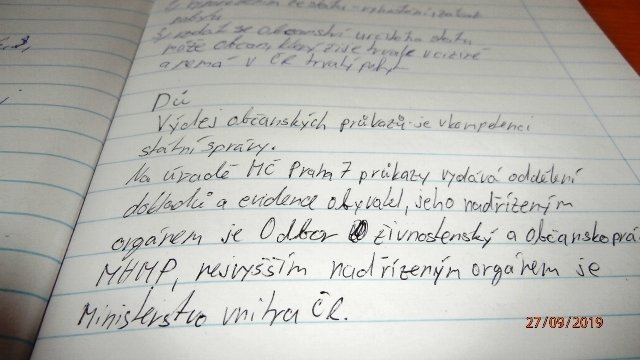 pobytu
vzdát se občanství určitého státu
může občan, který žije trvale v cizině
a nemá v ČR trvalý pobyt
DÚ
Výdej občanských průkazů je v kompetenci
státní správy.
Na úřadě MČ Praha 7 průkazy vydává oddělení
dokladů a evidence obyvatel, jeho nadřízeným
orgánem je Odbor živnostenský a občanskoprá
MHMP, nejvyšším nadřízeným orgánem je
Ministerstvo vnitra ČR.
27/09/2019